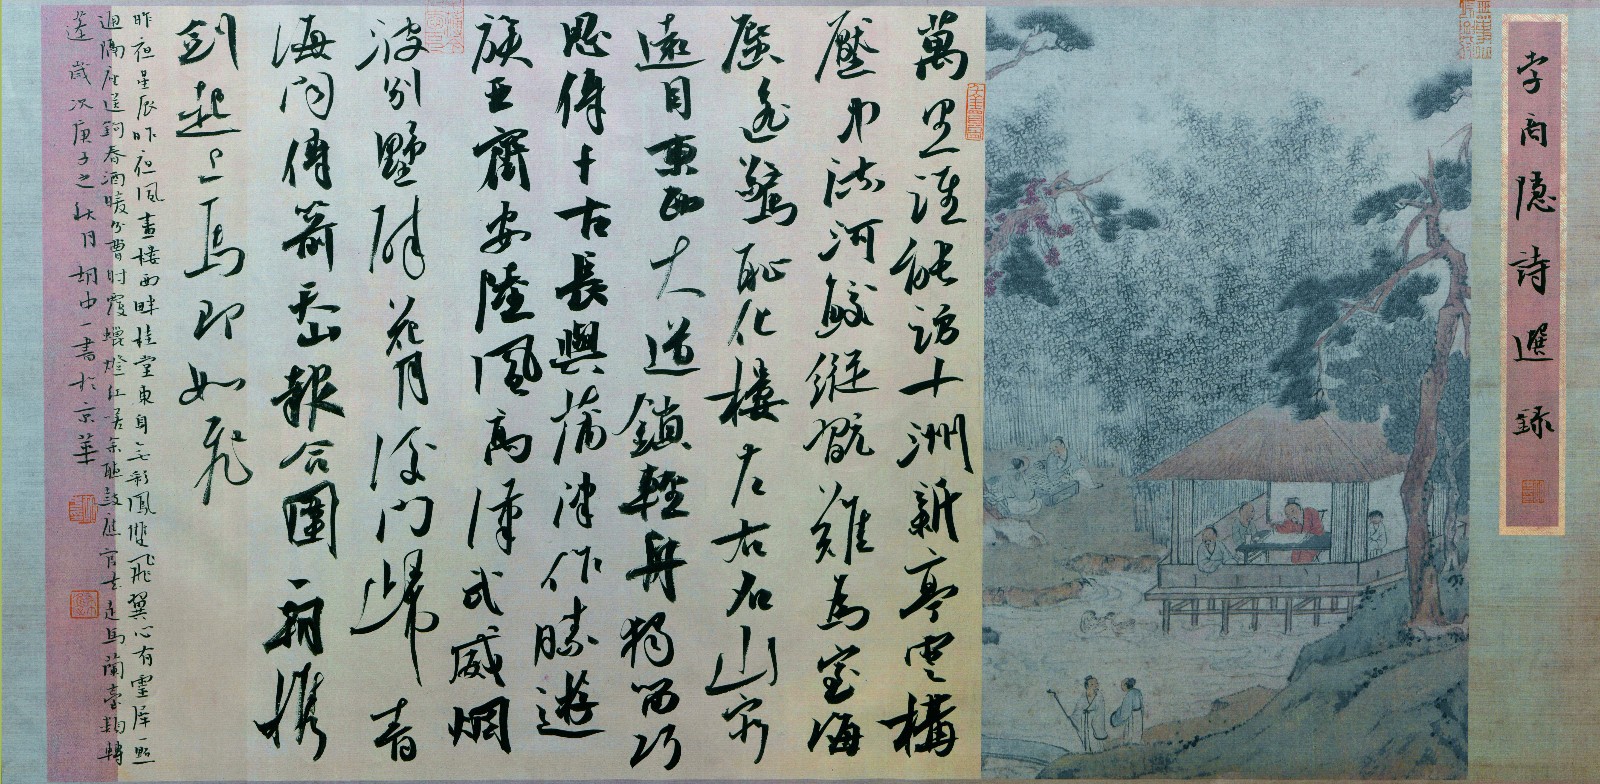 李商隱詩選録
萬里誰能訪十洲新亭雲構
壓中流河鮫縱翫難為室海
蜃遙驚恥化樓左右名山窮
遠目東西大道鎖輕舟獨留巧
思傳千古長與蒲津作勝遊
族亞齊安陸風高漢武威烟
波別墅醉花月後門歸青
海聞傳箭天山報合圍一朝携
劍起上馬即如飛
昨夜星辰昨夜風畫樓西畔桂堂東身无彩鳳雙飛翼心有靈犀一點
通隔座送鉤春酒暖分曹射覆蠟燈紅嗟余聽鼓應官去走馬蘭臺類轉
蓬歲次庚子之秋月胡中一書於京華